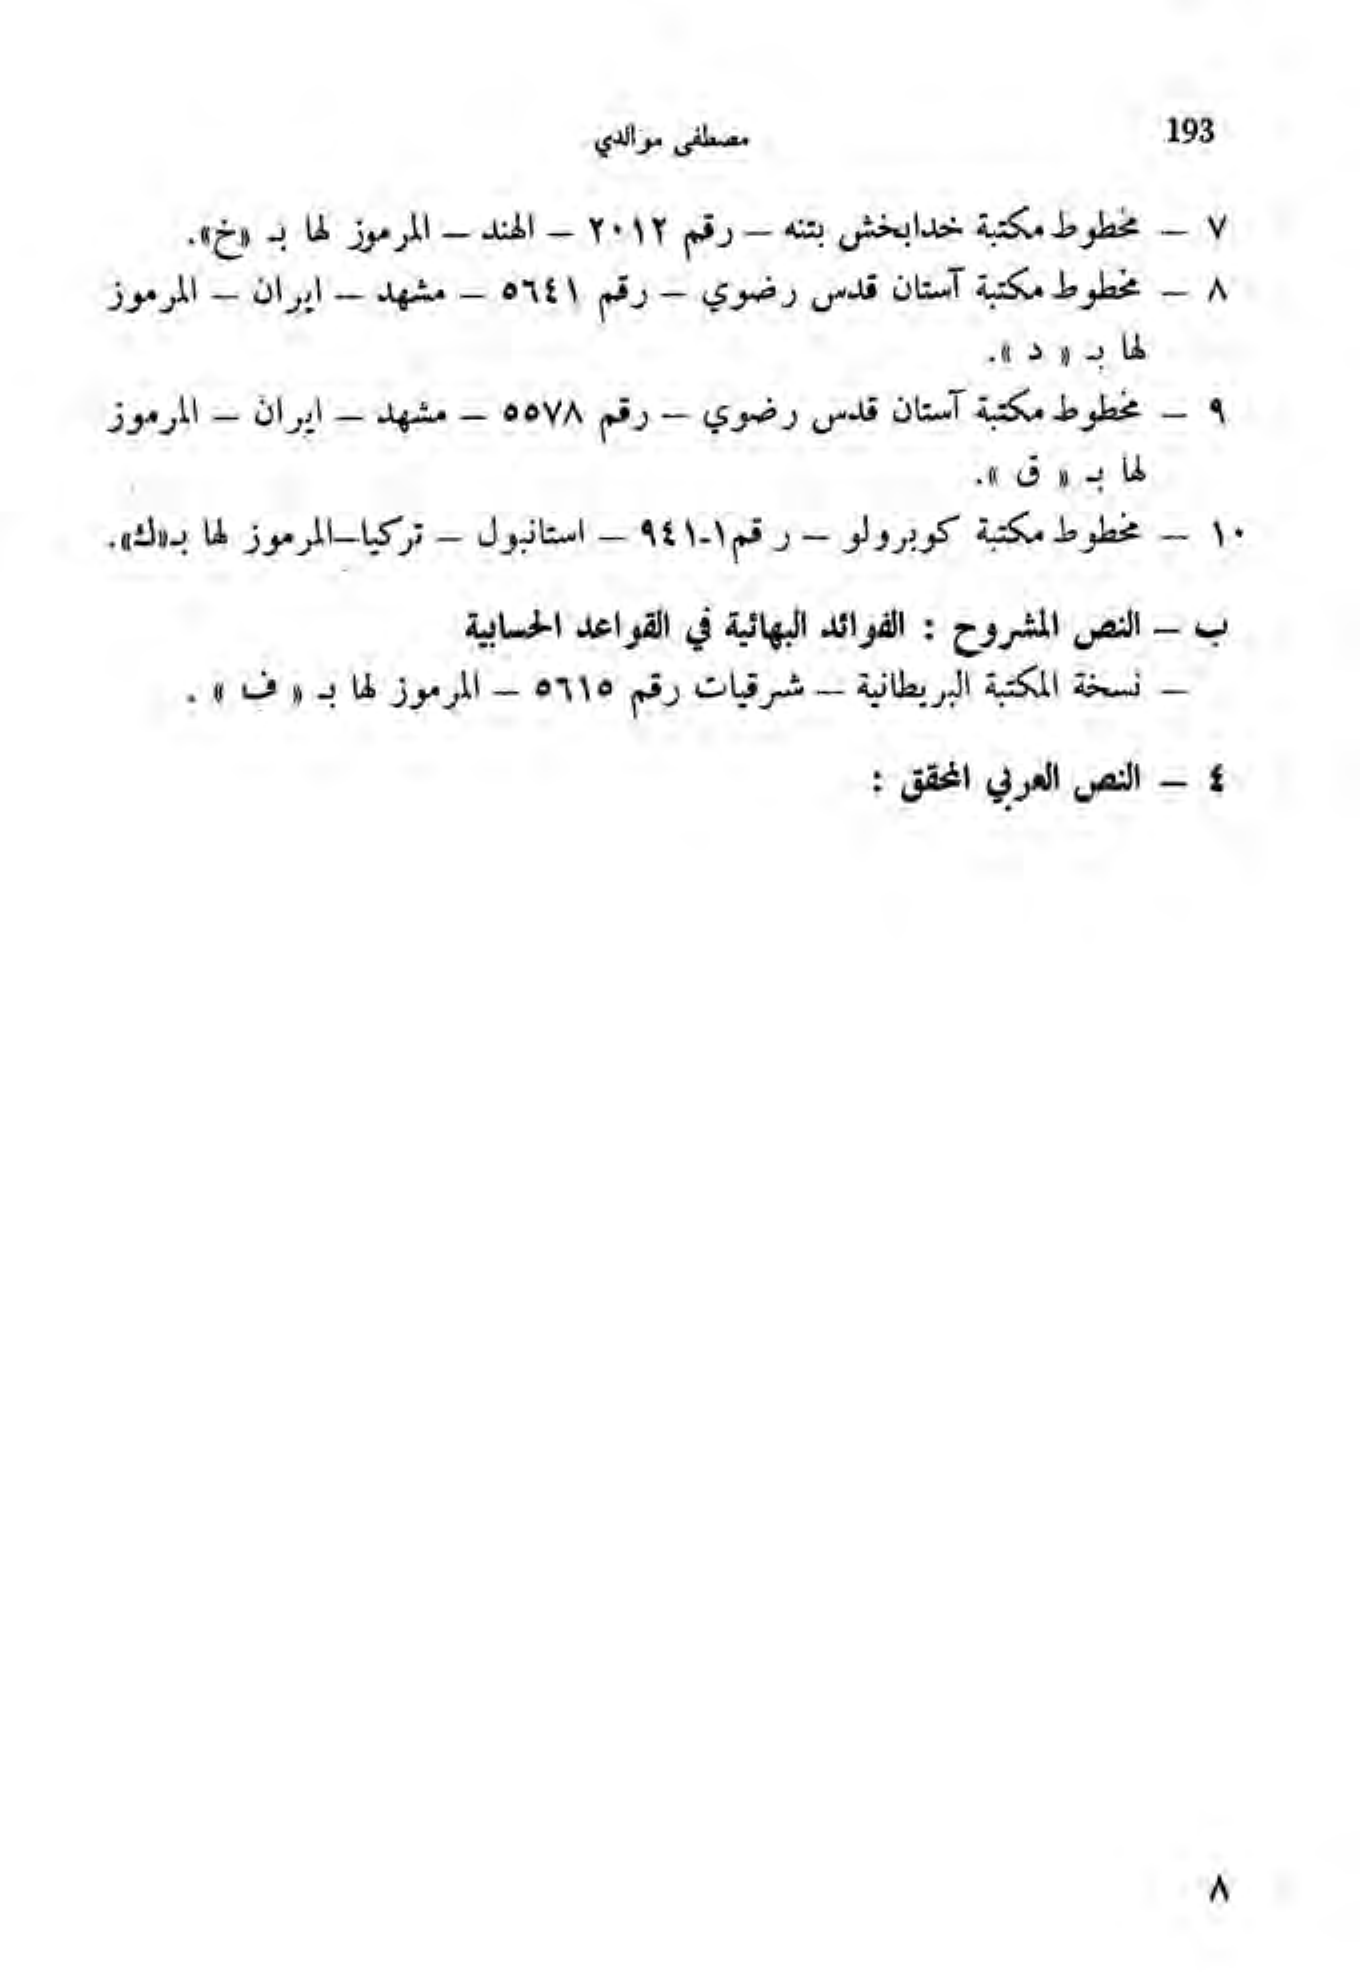 193
مصطفى موالدي
٧ – مخطوط مكتبة خدابخش بتنه – رقم ٢٠١٢ – الهند – المرموز لها بـ «خ».
٨ – مخطوط مكتبة آستان قدس رضوي – رقم ٥٦٤١ – مشهد – ايران – المرموز
لها بـ « د ».
٩ – مخطوط مكتبة آستان قدس رضوي – رقم ٥٥٧٨ – مشهد – ايران – المرموز
لها بـ « ق ».
١٠ – مخطوط مكتبة كوبرولو – رقم ١-٩٤١ – استانبول – تركيا–المرموز لها بـ«ك».
ب – النص المشروح : الفوائد البهائية في القواعد الحسابية
– نسخة المكتبة البريطانية – شرقيات رقم ٥٦١٥ – المرموز لها بـ « ف » .
٤ – النص العربي المحقق :
٨